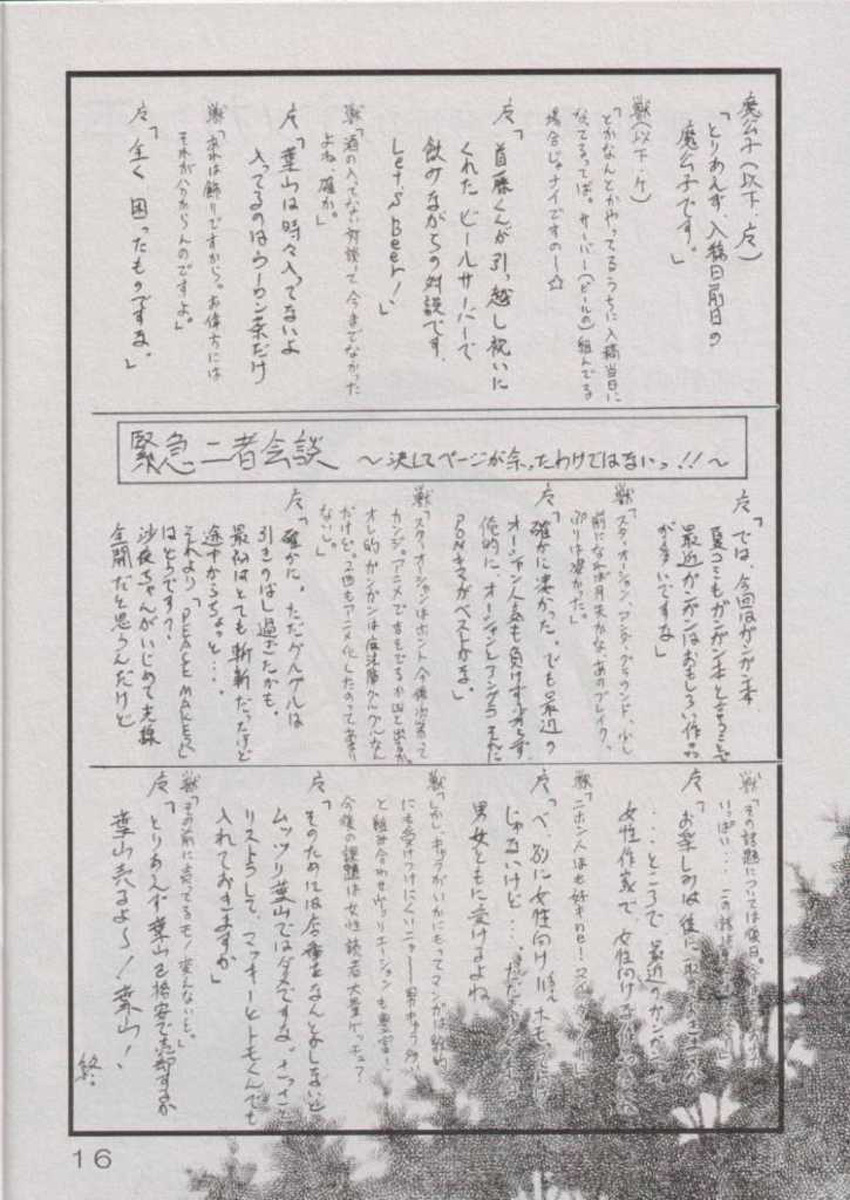 魔公子(以下、広)
「とりあえず、入稿日前日の
魔公子です。」
獣(以下、ケ)
「とかなんとかやってるうちに入稿当日に
なってるってば。サーバー(ビールの)組んでる
場合じゃナイですのー☆
「首藤くんが引っ越し祝いに
くれたビールサーバーで
飲みながらの対談です。
Let's Beer!」
獣「酒の入ってない対談って今までなかった
よね、確か。」
「葉山は時々入ってないよ
入ってるのはウーロン茶だけ
獣「あれは飾りですから。お偉方には
それが分からんのですよ。」
「全く困ったものですな。」
緊急二者会談 ～決してページが余ったわけではないっ!!～
「では、今回はガンガン本
夏コミもガンガン本ということで
最近ガンガンはおもしろい作品
が多いですな」
獣「スターオーシャン、アンダーグラウンド、少し
前になれば月天かな、あのブレイク
ぶりは凄かった。」
「確かに凄かった。でも最近の
オーシャン人気も負けず劣らず
俺的に、オーシャンとアングラ、それに
PONキマがベストかな。」
獣「スターオーシャンはホント今後次第って
カンジ。アニメで吉とでるか凶と出るか。
オレ的ガンガンは魔法陣グルグルなん
だけど。2回もアニメ化したのってあまり
ないし。」
「確かに。ただグルグルは
引きのばし過ぎたかも。
最初はとても斬新だったけど
途中からちょっと・・・
それより「PEACE MAKER」
はどうです?
沙夜ちゃんがいじめて光線
全開だと思うんだけど
獣「その話題については後日。
いっぱい・・・この話は
「お楽しみは後に取って
・・・ところで最近のガンガンって
女性作家で、女性向け
獣「ニホン人はお好きのせ!
「べ、別に女性向け=ホモ、ってわけ
じゃないけど・・・。ただ
男女ともに受けるよね
獣「しかし、キャラがいかにもってマンガは
にも受けつけにくいニャ～
と組み合わせヴァリエーションも豊富!
今後の課題は女性読者大量ゲッチュ?
「そのためには店番をなんとかしないと
ムッツリ葉山ではダメですな。さっさと
リストラして、マッキーとトモくんでも
入れておきますか」
獣「その前に売ってるモノ変えないと。」
「とりあえず葉山を格安で売却するか
葉山売るよ～!葉山!
終
16